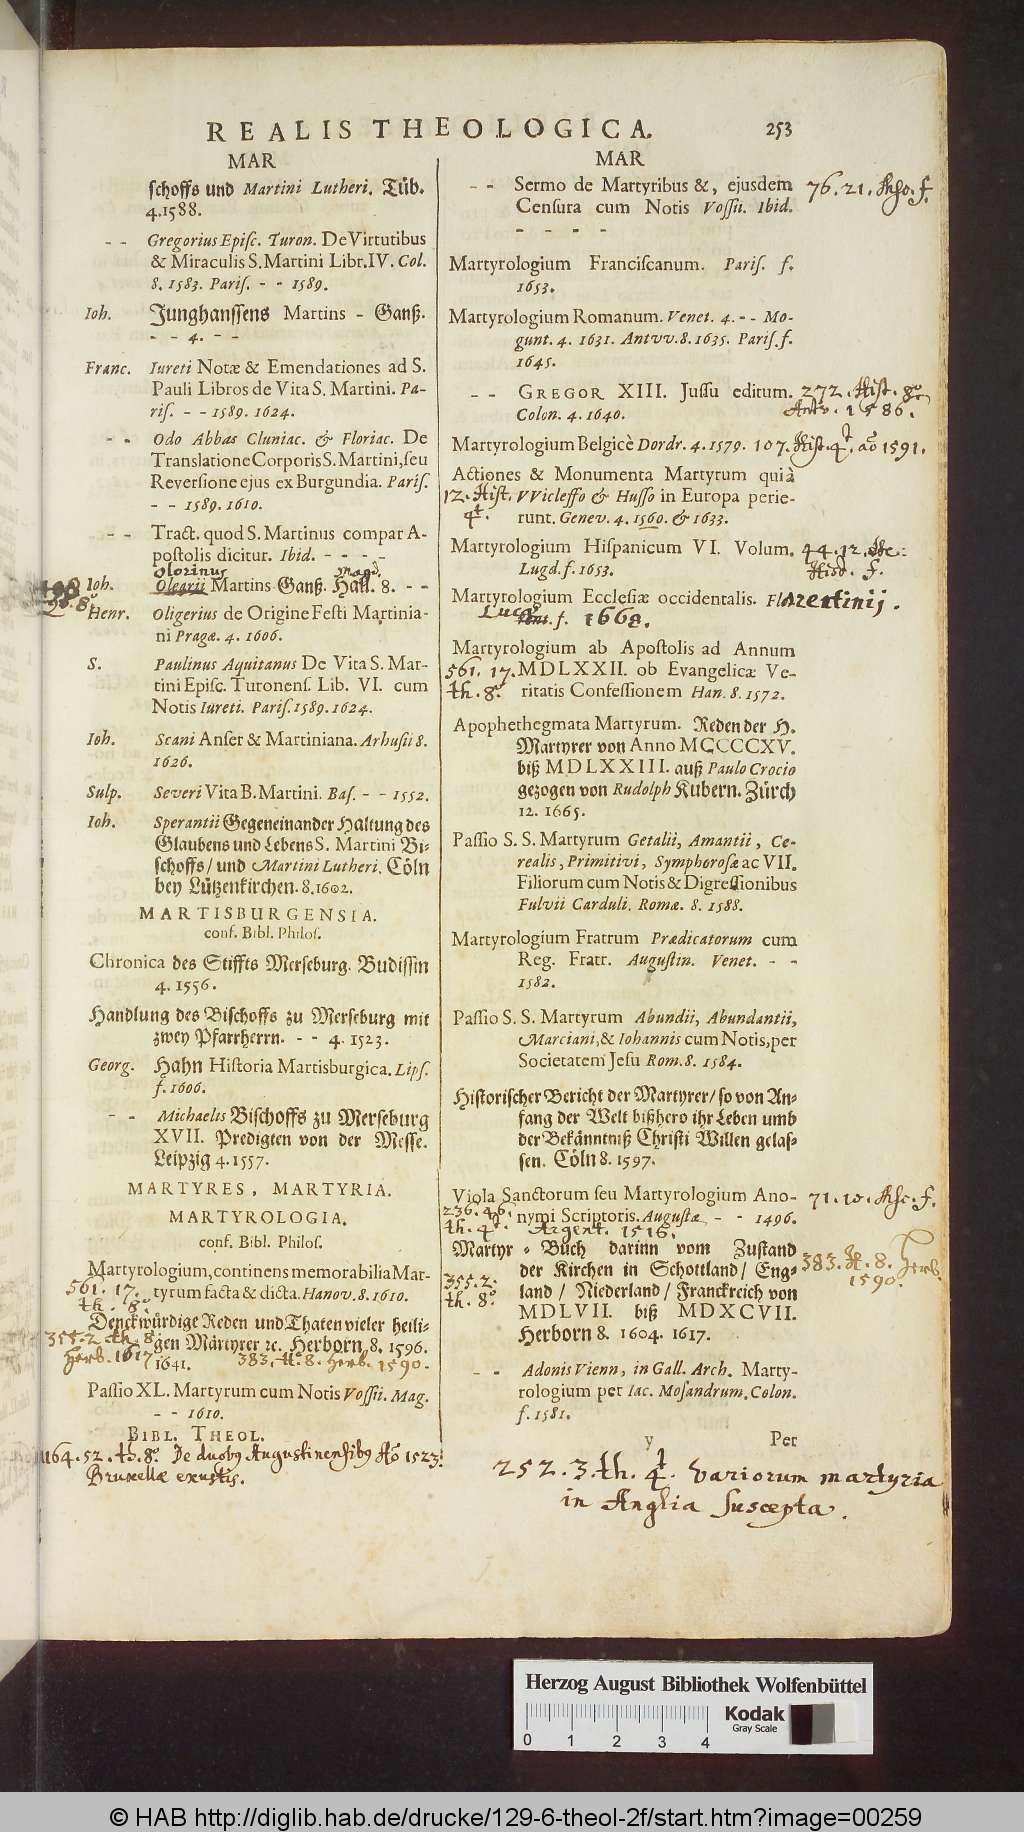 REALIS THEOLOGICA. 253
MAR
schoffs und Martini Lutheri. Tüb.
4.1588.
- - Gregorius Episc. Turon. De Virtutibus
& Miraculis S. Martini Libr. IV. Col.
8. 1583. Paris. - - 1589.
Ioh. Junghanssens Martins - Ganß.
- - 4. - -
Franc. Iureti Notæ & Emendationes ad S.
Pauli Libros de Vita S. Martini. Pa-
ris. - - 1589. 1624.
- - Odo Abbas Cluniac. & Floriac. De
Translatione Corporis S. Martini, seu
Reversione ejus ex Burgundia. Paris.
- - 1589. 1610.
- - Tract. quod S. Martinus compar A-
postolis dicitur. Ibid. - - - -
olorinus magd.
Ioh. Olearii Martins Ganß. Hall. 8. - -
98. 8o
Henr. Oligerius de Origine Festi Martinia-
ni Pragæ. 4. 1606.
S. Paulinus Aquitanus De Vita S. Mar-
tini Episc. Turonens. Lib. VI. cum
Notis Iureti. Paris. 1589. 1624.
Ioh. Scani Anser & Martiniana. Arhusii 8.
1626.
Sulp. Severi Vita B. Martini. Bas. - - 1552.
Ioh. Sperantii Gegeneinander Haltung des
Glaubens und Lebens S. Martini Bi-
schoffs / und Martini Lutheri. Cöln
bey Lützenkirchen. 8. 1602.
MARTISBURGENSIA.
conf. Bibl. Philos.
Chronica des Stiffts Merseburg. Budissin
4. 1556.
Handlung des Bischoffs zu Merseburg mit
zwey Pfarrherrn. - - 4. 1523.
Georg. Hahn Historia Martisburgica. Lips.
f. 1606.
- - Michaelis Bischoffs zu Merseburg
XVII. Predigten von der Messe.
Leipzig 4. 1557.
MARTYRES, MARTYRIA.
MARTYROLOGIA.
conf. Bibl. Philos.
Martyrologium, continens memorabilia Mar-
561. 17. tyrum facta & dicta. Hanov. 8. 1610.
th. 8o.
Denckwürdige Reden und Thaten vieler heili-
355. 2. th. 8o gen Märtyrer ꝛc. Herborn. 8. 1596.
Herb. 1617 1641. 383. H. 8. Herb. 1590.
Passio XL. Martyrum cum Notis Vossii. Mag.
- - 1610.
BIBL. THEOL.
1164. 52. th. 8o. De duobus Augustinensibus Ao 1523.
Bruxellæ exustis.
MAR
- - Sermo de Martyribus &, ejusdem 76. 21. f.
Censura cum Notis Vossii. Ibid.
- - - -
Martyrologium Franciscanum. Paris. f.
1653.
Martyrologium Romanum. Venet. 4. - - Mo-
gunt. 4. 1631. Antvv. 8. 1635. Paris. f.
1645.
- - GREGOR XIII. Jussu editum. 272. Hist. 8o
Colon. 4. 1640. Antv. 1586.
Martyrologium Belgicè Dordr. 4. 1579. 107. Hist. 4t. ao 1591.
Actiones & Monumenta Martyrum quià
12. Hist. VVicleffo & Husso in Europa perie-
4t. runt. Genev. 4. 1560. & 1633.
Martyrologium Hispanicum VI. Volum. 44. 12.
Lugd. f. 1653. Hist. f.
Martyrologium Ecclesiæ occidentalis. Florentinij.
Lucæ f. 1668.
Martyrologium ab Apostolis ad Annum
561. 17. MDLXXII. ob Evangelicæ Ve-
th. 8o. ritatis Confessionem Han. 8. 1572.
Apophethegmata Martyrum. Reden der H.
Martyrer von Anno MCCCCXV.
biß MDLXXIII. auß Paulo Crocio
gezogen von Rudolph Kubern. Zürch
12. 1665.
Passio S. S. Martyrum Getalii, Amantii, Ce-
realis, Primitivi, Symphorosæ ac VII.
Filiorum cum Notis & Digressionibus
Fulvii Carduli. Romæ. 8. 1588.
Martyrologium Fratrum Prædicatorum cum
Reg. Fratr. Augustin. Venet. - -
1582.
Passio S. S. Martyrum Abundii, Abundantii,
Marciani, & Iohannis cum Notis, per
Societatem Jesu Rom. 8. 1584.
Historischer Bericht der Martyrer / so von An-
fang der Welt bißhero ihr Leben umb
der Bekänntniß Christi Willen gelas-
sen. Cöln 8. 1597.
Viola Sanctorum seu Martyrologium Ano- 71. 10. f.
236. 46. nymi Scriptoris. Augustæ - - 1496.
th. 4t. Argent. 1516.
Martyr - Buch darinn vom Zustand
der Kirchen in Schottland / Eng- 383. H. 8. Herb.
355. 2. land / Niederland / Franckreich von 1590.
th. 8o. MDLVII. biß MDXCVII.
Herborn 8. 1604. 1617.
- - Adonis Vienn, in Gall. Arch. Marty-
rologium per Iac. Mosandrum. Colon.
f. 1581.
y Per
252. 3. th. 4t. variorum martyria
in Anglia suscepta.
Herzog August Bibliothek Wolfenbüttel
0 1 2 3 4
Kodak
Gray Scale
© HAB http://diglib.hab.de/drucke/129-6-theol-2f/start.htm?image=00259